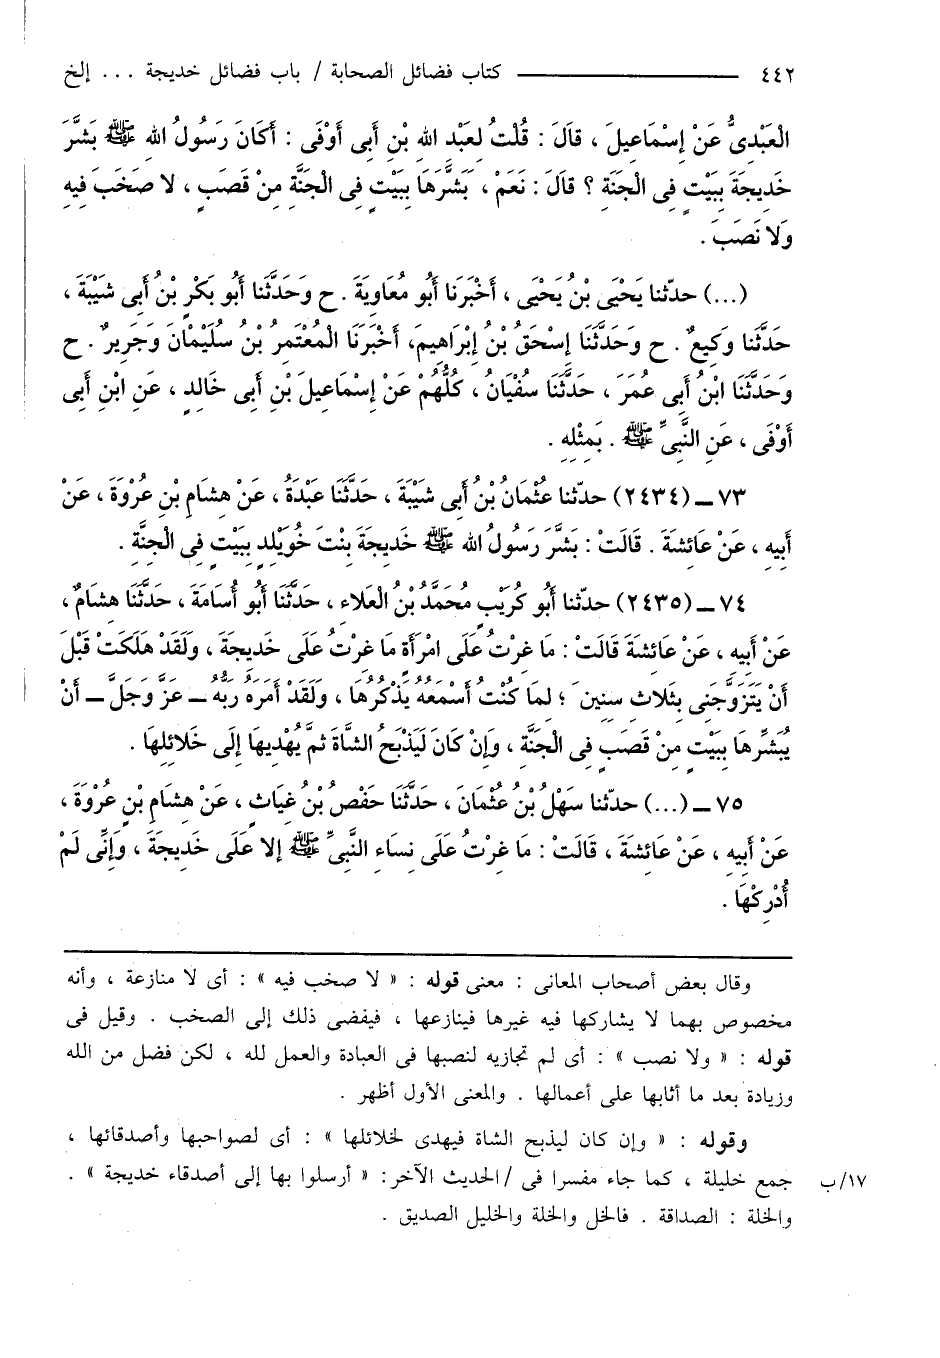 ٤٤٢ ــــــــــــــــ كتاب فضائل الصحابة / باب فضائل خديجة ... إلخ
الْعَبْدِىُّ عَنْ إِسْمَاعِيلَ ، قَالَ : قُلْتُ لِعَبْدِ اللهِ بْنِ أَبِى أَوْفَى : أَكَانَ رَسُولُ اللهِ ﷺ بَشَّرَ
خَدِيجَةَ بِبَيْتٍ فِى الْجَنَّةِ ؟ قَالَ : نَعَمْ ، بَشَّرَهَا بِبَيْتٍ فِى الْجَنَّةِ مِنْ قَصَبٍ ، لا صَخَبَ فِيهِ
وَلا نَصَبَ .
(...) حدّثنا يَحْيَى بْنُ يَحْيَى ، أَخْبَرَنَا أَبُو مُعَاوِيَةَ . ح وَحَدَّثَنَا أَبُو بَكْرِ بْنُ أَبِى شَيْبَةَ ،
حَدَّثَنَا وَكِيعٌ . ح وَحَدَّثَنَا إِسْحَقُ بْنُ إِبْرَاهِيمَ، أَخْبَرَنَا الْمُعْتَمِرُ بْنُ سُلَيْمَانَ وَجَرِيرٌ . ح
وَحَدَّثَنَا ابْنُ أَبِى عُمَرَ ، حَدَّثَنَا سُفْيَانُ ، كُلُّهُمْ عَنْ إِسْمَاعِيلَ بْنِ أَبِى خَالِدٍ ، عَنِ ابْنِ أَبِى
أَوْفَى ، عَنِ النَّبِىِّ ﷺ . بِمِثْلِهِ .
٧٣ ــ (٢٤٣٤) حدّثنا عُثْمَانُ بْنُ أَبِى شَيْبَةَ ، حَدَّثَنَا عَبْدَةُ ، عَنْ هِشَامِ بْنِ عُرْوَةَ ، عَنْ
أَبِيهِ ، عَنْ عَائِشَةَ . قَالَتْ : بَشَّرَ رَسُولُ اللهِ ﷺ خَدِيجَةَ بِنْتَ خُوَيْلِدٍ بِبَيْتٍ فِى الْجَنَّةِ .
٧٤ ــ (٢٤٣٥) حدّثنا أَبُو كُرَيْبٍ مُحَمَّدُ بْنُ الْعَلاءِ ، حَدَّثَنَا أَبُو أُسَامَةَ ، حَدَّثَنَا هِشَامٌ ،
عَنْ أَبِيهِ ، عَنْ عَائِشَةَ قَالَتْ : مَا غِرْتُ عَلَى امْرَأَةٍ مَا غِرْتُ عَلَى خَدِيجَةَ ، وَلَقَدْ هَلَكَتْ قَبْلَ
أَنْ يَتَزَوَّجَنِى بِثَلاثِ سِنِينَ ؛ لِمَا كُنْتُ أَسْمَعُهُ يَذْكُرُهَا ، وَلَقَدْ أَمَرَهُ رَبُّهُ ــ عَزَّ وَجَلَّ ــ أَنْ
يُبَشِّرَهَا بِبَيْتٍ مِنْ قَصَبٍ فِى الْجَنَّةِ ، وَإِنْ كَانَ لَيَذْبَحُ الشَّاةَ ثُمَّ يُهْدِيهَا إِلَى خَلائِلِهَا .
٧٥ ــ (...) حدّثنا سَهْلُ بْنُ عُثْمَانَ ، حَدَّثَنَا حَفْصُ بْنُ غِيَاثٍ ، عَنْ هِشَامِ بْنِ عُرْوَةَ ،
عَنْ أَبِيهِ ، عَنْ عَائِشَةَ ، قَالَتْ : مَا غِرْتُ عَلَى نِسَاءِ النَّبِىِّ ﷺ إِلا عَلَى خَدِيجَةَ ، وَإِنِّى لَمْ
أُدْرِكْهَا .
وقال بعض أصحاب المعانى : معنى قوله : « لا صخب فيه » : أى لا منازعة ، وأنه
مخصوص بهما لا يشاركها فيه غيرها فينازعها ، فيفضى ذلك إلى الصخب . وقيل فى
قوله : « ولا نصب » : أى لم تجازيه لنصبها فى العبادة والعمل لله ، لكن فضل من الله
وزيادة بعد ما أثابها على أعمالها . والمعنى الأول أظهر .
وقوله : « وإن كان ليذبح الشاة فيهدى لخلائلها » : أى لصواحبها وأصدقائها ،
١٧/ ب جمع خليلة ، كما جاء مفسرا فى / الحديث الآخر : « أرسلوا بها إلى أصدقاء خديجة » .
والخلة : الصداقة . فالخل والخلة والخليل الصديق .